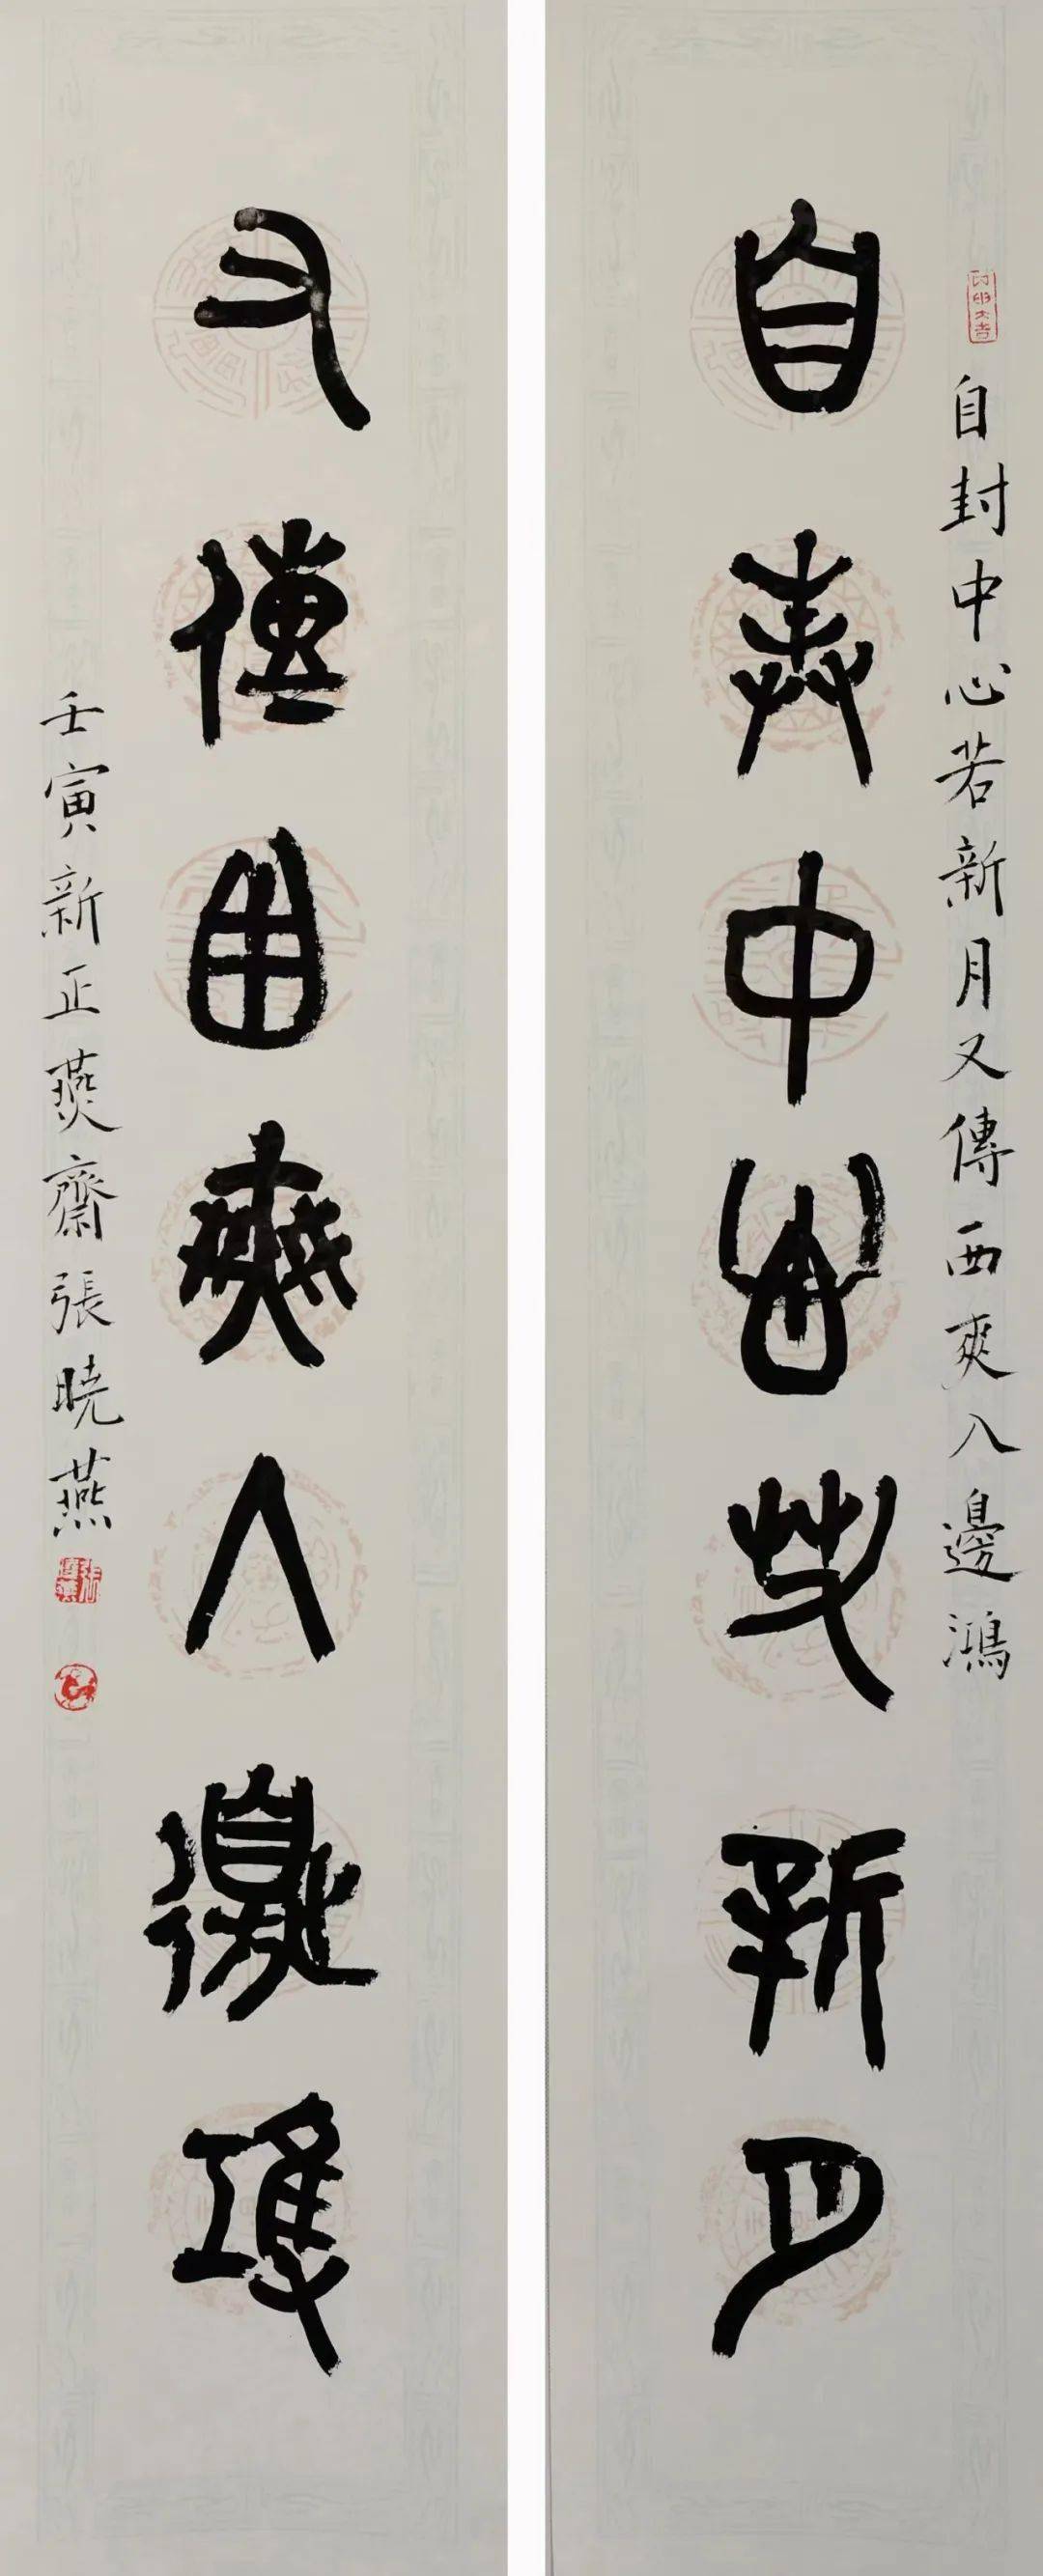 自封中心若新月
自封中心若新月又傳西爽入邊鴻
又傳西爽入邊鴻
壬寅新正燕齋張曉燕